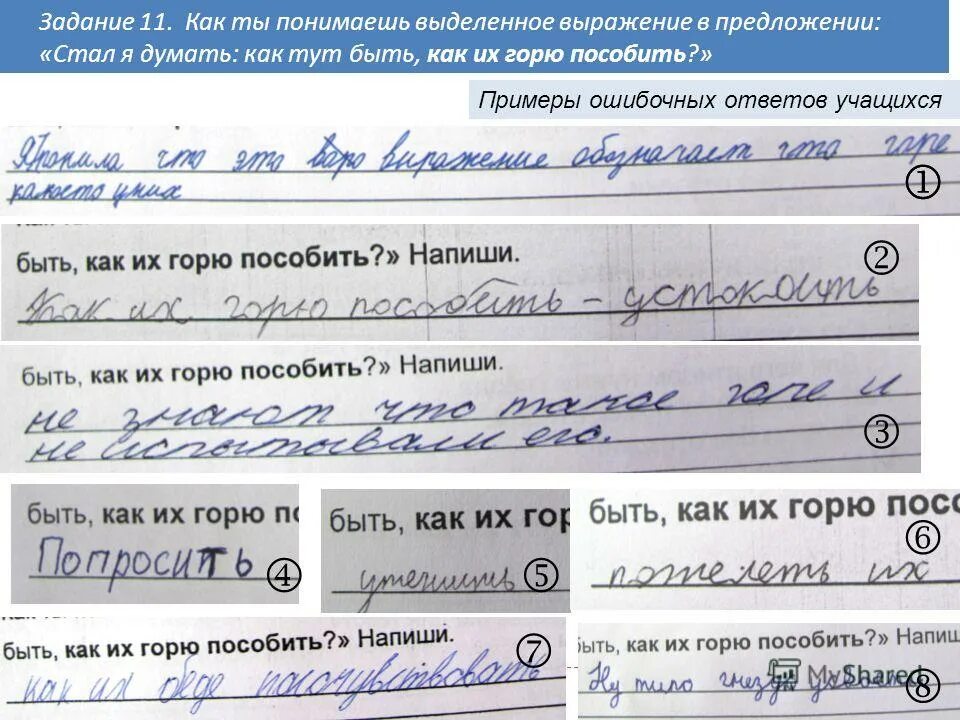 Задание 11. Как ты понимаешь выделенное выражение в предложении:
«Стал я думать: как тут быть, как их горю пособить?»
Примеры ошибочных ответов учащихся
что это выражение обозначает что горе
①
быть, как их горю пособить?» Напиши.
②
Как их горю пособить – успокоить
быть, как их горю пособить?» Напиши.
не знают что такое горе и
не испытывали его.
③
быть, как их горю по
Попросить
④
быть, как их гор
утешить
⑤
быть, как их горю посо
⑥
пожелеть их
быть, как их горю пособить?» Напиши.
⑦
как их беде посочувствовать
быть, как их горю пособить?» Напиш
Ну типо гнезду
MyShared
⑧